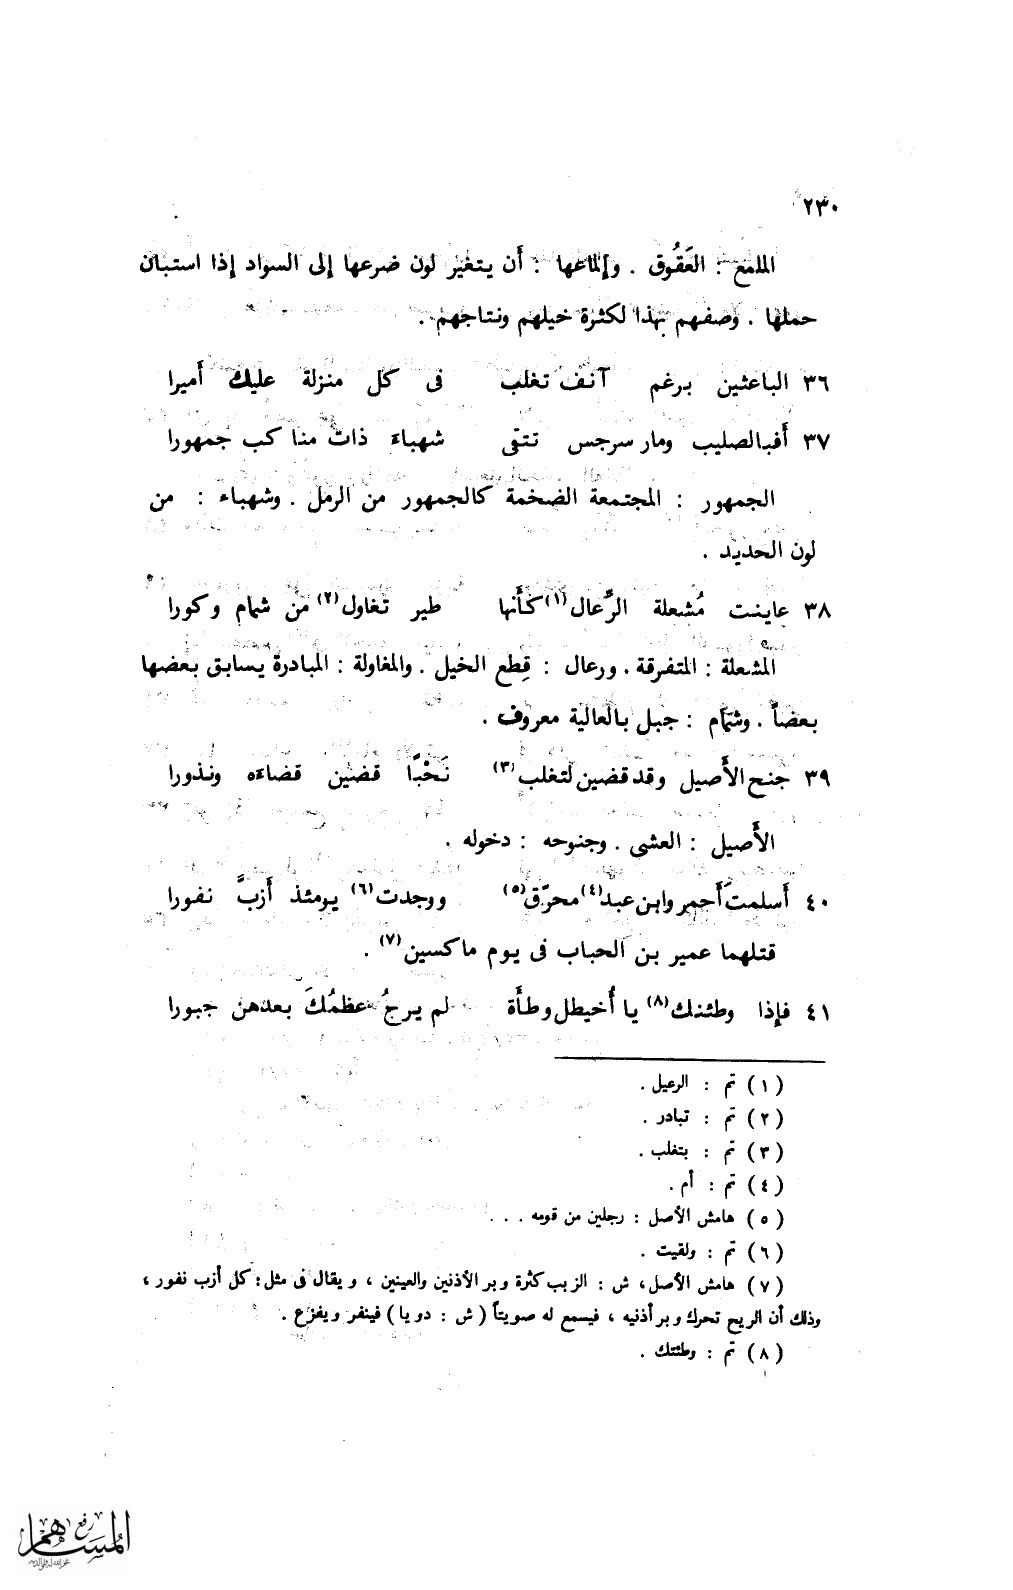 ٢٣٠
الملمع : العَقُوق . وإلماعها : أن يتغير لون ضرعها إلى السواد إذا استبان
حملها . وصفهم بهذا لكثرة خيلهم ونتاجهم .
٣٦ الباعثين برغم آنف تغلب فى كل منزلة عليك أَميرا
٣٧ أَفبالصليب ومار سرجس تتقى شهباءَ ذات مناكب جمهورا
الجمهور : المجتمعة الضخمة كالجمهور من الرمل . وشهباء : من
لون الحديد .
٣٨ عاينت مُشعلة الرِّعال(١) كأَنها طير تغاول(٢) من شمام وكورا
المشعلة : المتفرقة . ورعال : قِطع الخيل . والمغاولة : المبادرة يسابق بعضها
بعضاً . وشمَام : جبل بالعالية معروف .
٣٩ جنح الأَصيل وقد قضين لتغلب(٣) نَحْبًا قضين قضاءَه ونذورا
الأَصيل : العشى . وجنوحه : دخوله .
٤٠ أَسلمتَ أَحمر وابن عبد(٤) محرّق(٥) ووجدت(٦) يومئذ أَزبَّ نفورا
قتلهما عمير بن الحباب فى يوم ماكسين(٧) .
٤١ فإِذا وطئنك(٨) يا أُخيطل وطأَة لم يرجُ عظمُكَ بعدهن جبورا
(١) تم : الرعيل .
(٢) تم : تبادر .
(٣) تم : بتغلب .
(٤) تم : أم .
(٥) هامش الأصل : رجلين من قومه . . .
(٦) تم : ولقيت .
(٧) هامش الأصل ، ش : الزبب كثرة وبر الأذنين والعينين ، ويقال فى مثل : كل أزب نفور ،
وذلك أن الريح تحرك وبر أذنيه ، فيسمع له صويتاً ( ش : دويا ) فينفر ويفزع .
(٨) تم : وطئتك .
رفع
المساهم